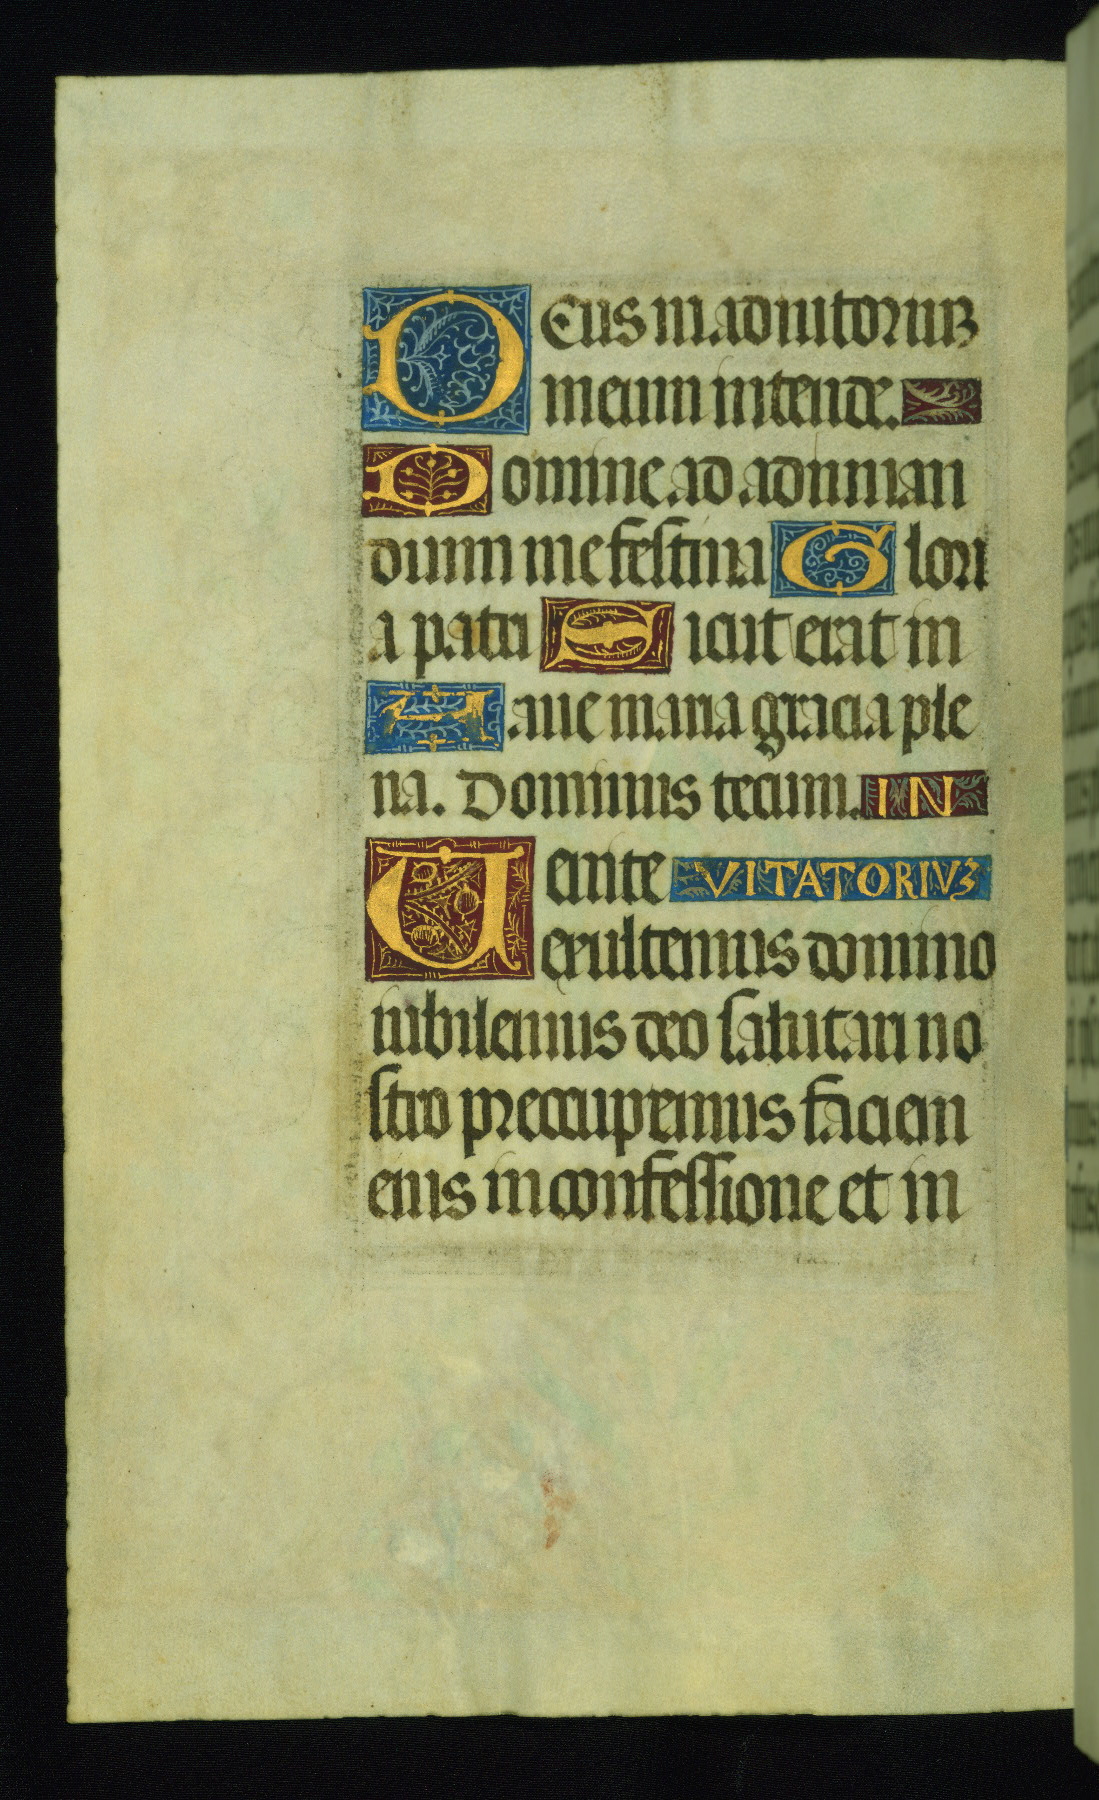 Deus in adiutorium
meum intende.
Domine ad adiuuan
dum me festina Glori
a patri Sicut erat in
Aaue maria gracia ple
na. Dominus tecum. IN
Uenite VITATORIVȝ
exultemus domino
iubilemus deo salutari no
stro preoccupemus faciem
eius in confessione et in